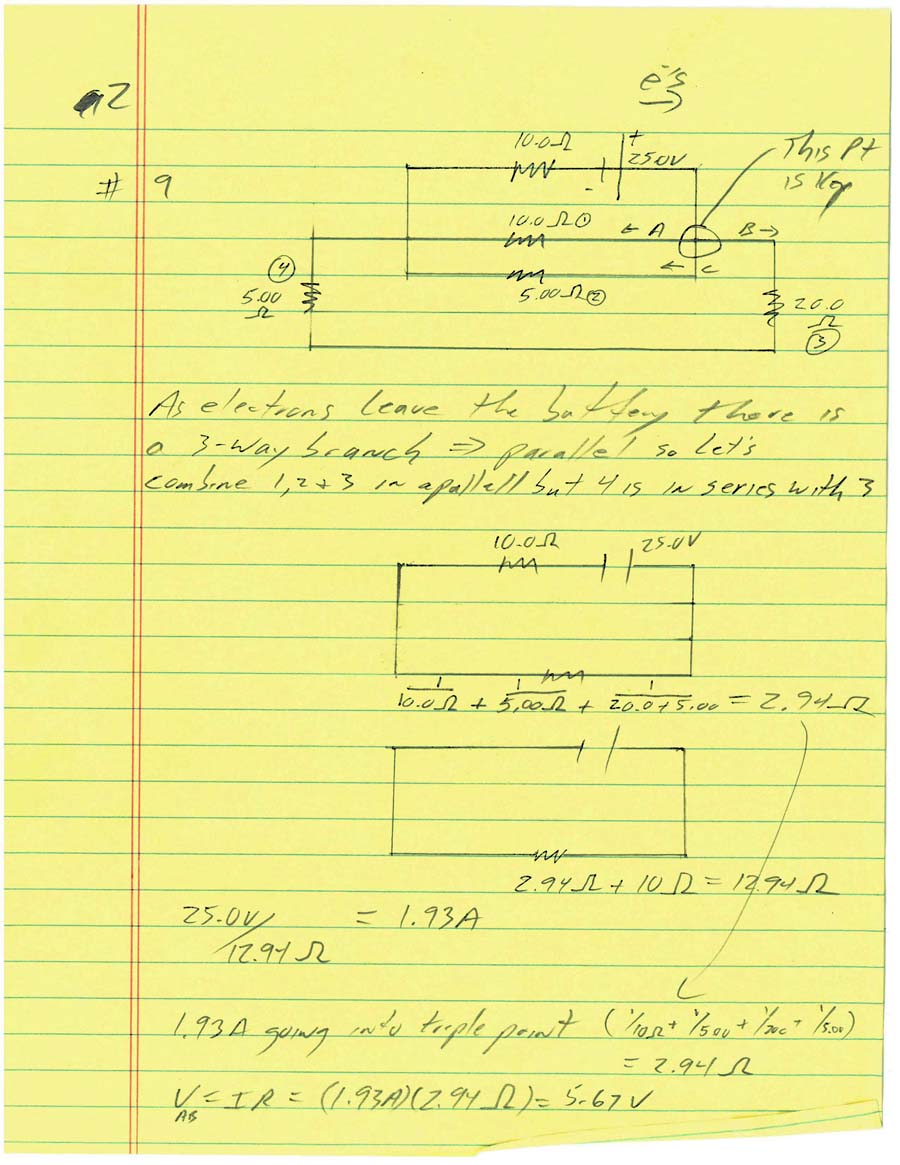 e⁻'s
→
#2
10.0Ω + 25.0V
-
This Pt
is Key
# 9
10.0Ω ①
← A B →
← C
④
5.00
Ω
5.00Ω②
20.0
Ω
③
As electrons leave the battery there is
a 3-way branch ⇒ parallel so Let's
combine 1,2+3 in apallell but 4 is in series with 3
10.0Ω 25.0V
1/10.0Ω + 1/5.00Ω + 1/20.0+5.00 = 2.94Ω
2.94Ω + 10Ω = 12.94Ω
25.0V/12.94Ω = 1.93A
1.93A going into triple point (1/10Ω + 1/5.00 + 1/20.0 + 1/5.00)
= 2.94Ω
V_AB = IR = (1.93A)(2.94Ω) = 5.67V